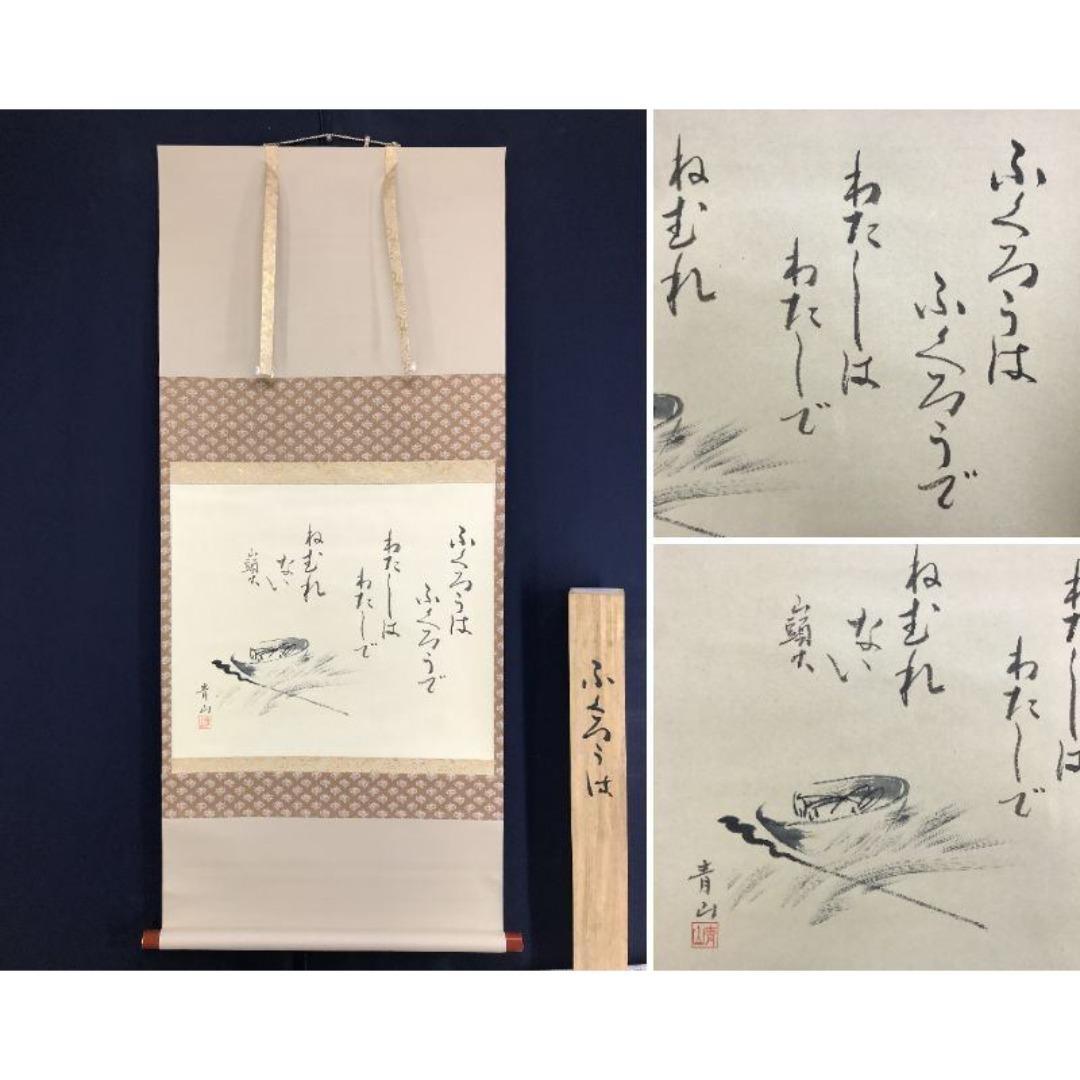 ふくろうは
ふくろうで
わたしは
わたしで
ねむれ
ない
山頭火
青山
ふくろうは
ふくろうは
ふくろうで
わたしは
わたしで
ねむれ
わたしは
わたしで
ねむれ
ない
山頭火
青山
青山